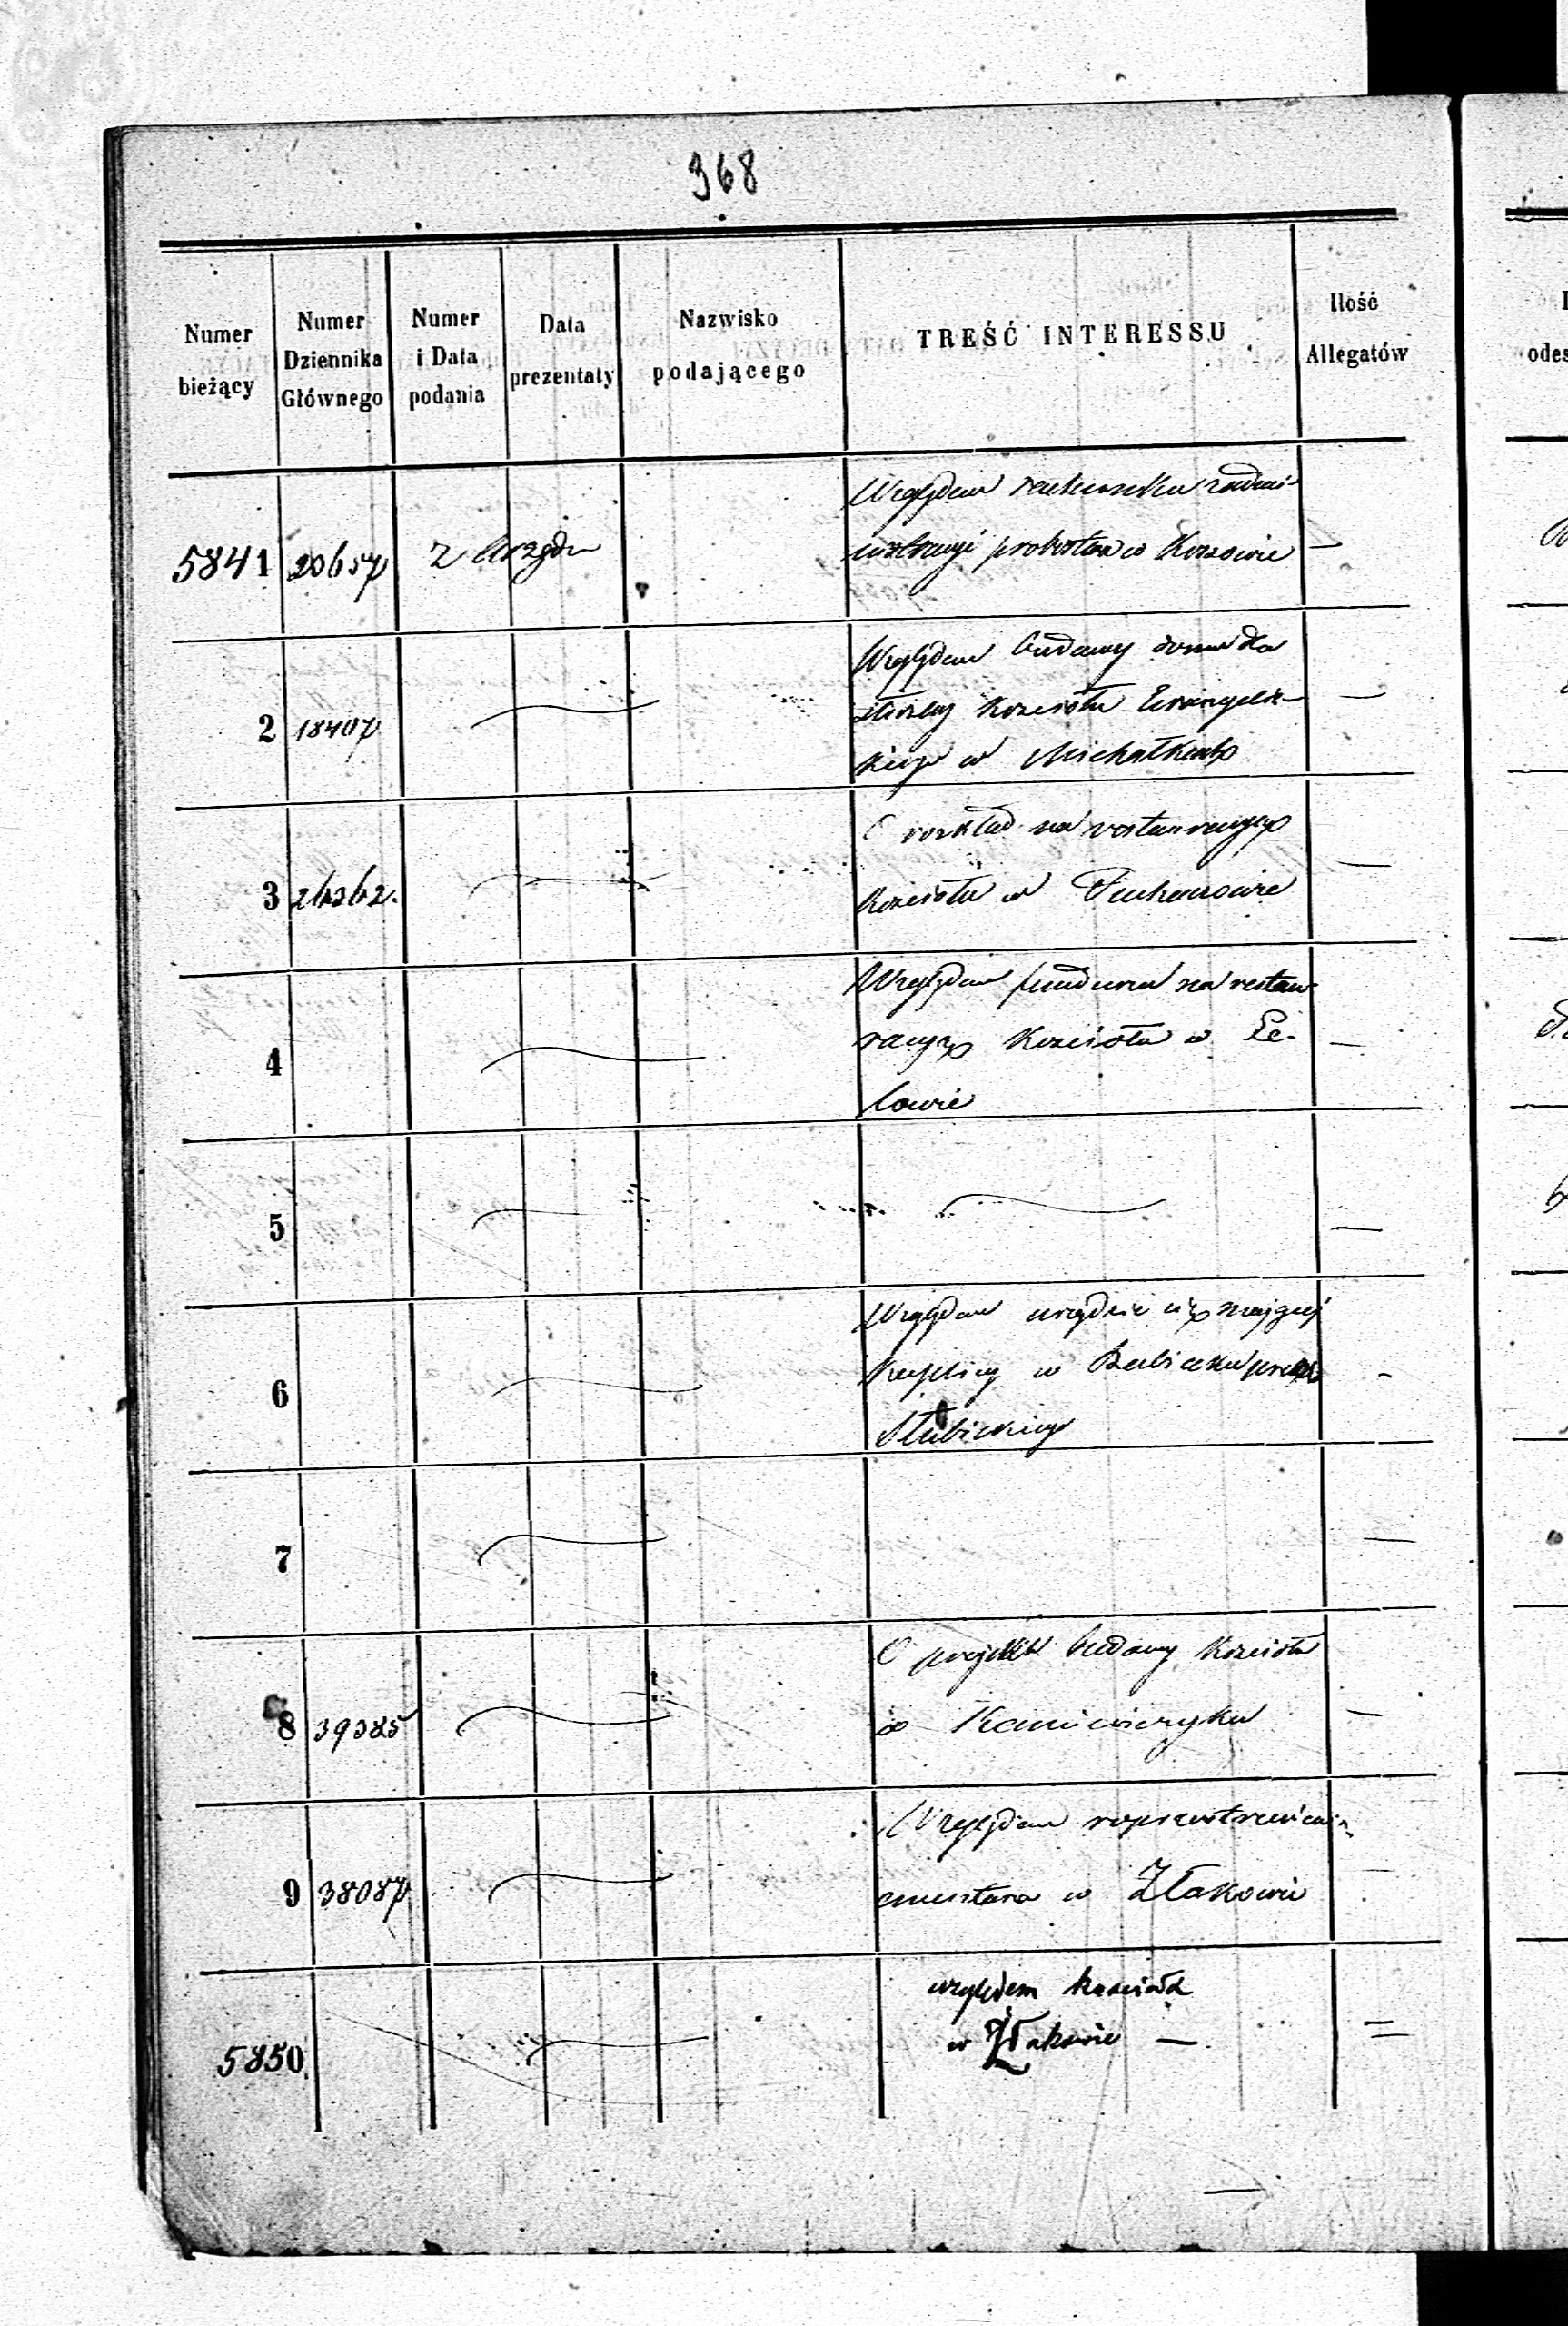 368
Numer bieżący
Numer Dziennika Głównego
Numer i Data podania
Data prezentaty
Nazwisko podającego
TREŚĆ INTERESSU
Ilość Allegatów
5841 20657 z Urzędu Względem rachunku zadmi-
nistracyi probostwa w —
2 18407 Względem budowy domu dla
służby kościoła Ewangelic-
kiego w Michałkach
3 26262. O rozkład na restauracyę
kościoła w
4 Względem funduszu na restau-
racyę kościoła w Pe-
lowie
5
6 Względem urządzić się mającej
kaplicy w przez
Słubickiego
7
8 39385 O projekt budowy kościoła
w Kamieńczyku
9 38087 Względem rozprzestrzenienia
cmentarza w Złakowie
5850 względem kościoła
w Złakowie —